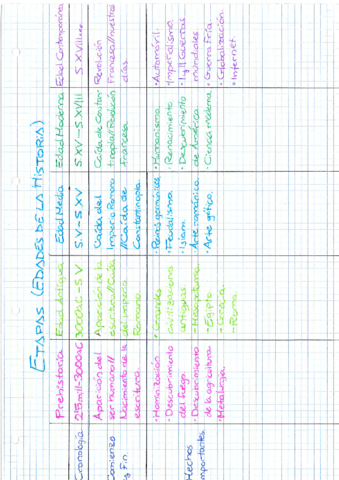 ETAPAS (EDADES DE LA HISTORIA)
Prehistoria
Edad Antigua
Edad Media
Edad Moderna
Edad Contemporánea
Cronología
2'5mill-3000aC
3000aC-S V
S.V-S XV
S XV-S XVIII
S XVIII
Comienzo
y Fin.
Aparición del
ser humano//
Nacimiento de la
escritura
Aparición de la
escritura//Caída
del imperio
Romano
Caída del
Imperio Romano
//Caída de
Constantinopla
Caída de Constan
tinopla//Revolución
francesa
Revolución
Francesa//nuestros
días
Hechos
importantes.
·Hominización
·Descubrimiento
del fuego
·Descubrimiento
de la agricultura
·Metalurgia
·Grandes
civilizaciones
antiguas
-Mesopotamia
-Egipto
-Grecia
-Roma
·Reinos germánicos
·Feudalismo
·Islam
·Arte románico
·Arte gótico
·Humanismo
·Renacimiento
·Descubrimiento
de América
·Ciencia moderna
·Automóvil
·Imperialismo
·I y II Guerras
mundiales
·Guerra Fría
·Globalización
·Internet